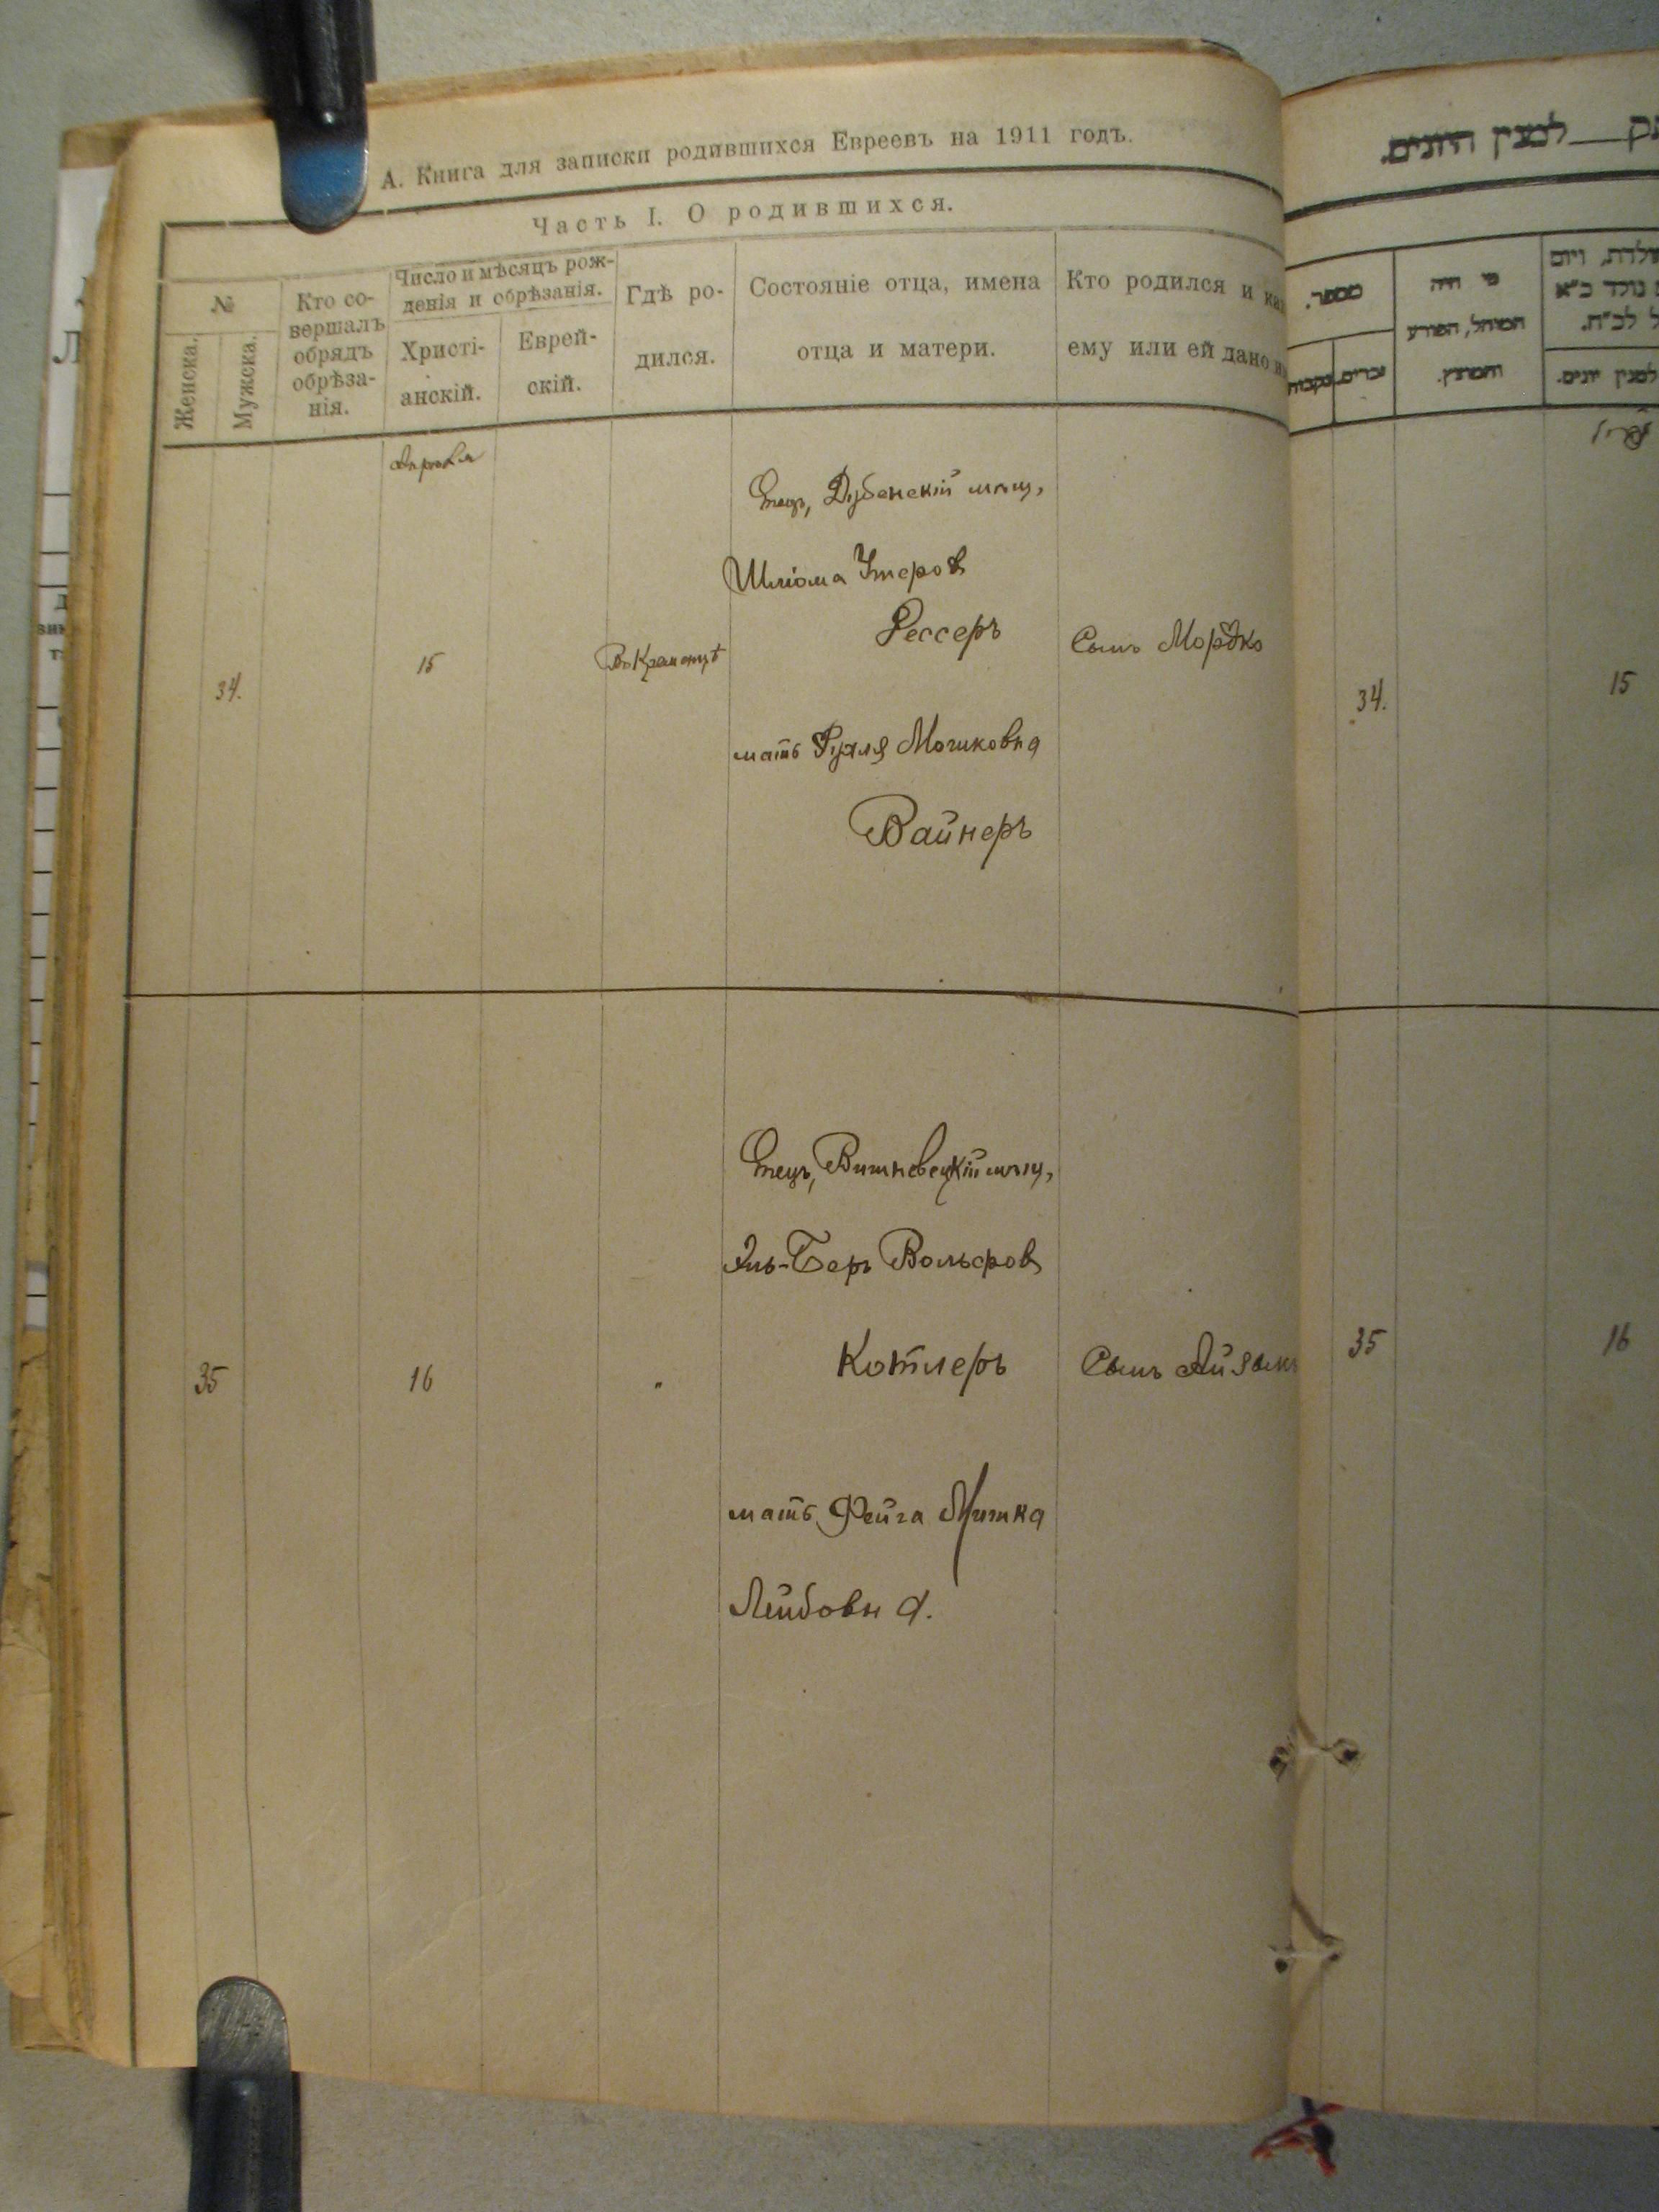 А. Книга для записки родившихся Евреевъ на 1911 годъ.
Часть I. О родившихся.
№
Женска.
Мужска.
Кто со-
вершалъ
обрядъ
обрѣза-
нія.
Число и мѣсяцъ рож-
денія и обрѣзанія.
Христі-
анскій.
Еврей-
скій.
Гдѣ ро-
дился.
Состояніе отца, имена
отца и матери.
Кто родился и
ему или ей дано
34.
Апрѣля
15
Въ Кременцѣ
Отецъ, Дубенскій мѣщ,
Шліома
Рессеръ
мать Рухля Мошковна
Вайнеръ
Сынъ Мордко
35
16
"
Отецъ, Вишневецкій мѣщ,
Эль-Беръ Вольфов
Котлеръ
мать Фейга
Лейбовна.
Сынъ Айзыкъ
למנין היונים.
מספר.
זכרים.
נקבות
מי היה
המוהל, הפורע
והמוצץ.
ויום
נולד כ"א
לכ"ח.
למנין יונים.
34.
15
35
16